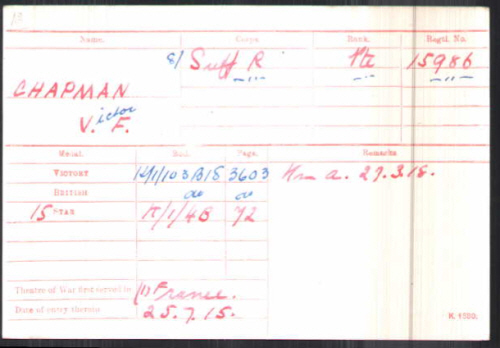 Name. Corps. Rank. Regtl. No.
8/ Suff R. Pte 15986
CHAPMAN
Victor F.
Medal. Roll. Page. Remarks.
VICTORY K/1/103B18 3603
BRITISH do do
15 STAR K/1/4B 72
Theatre of War first served in (1) France.
Date of entry therein 25.7.15.
K 1380.